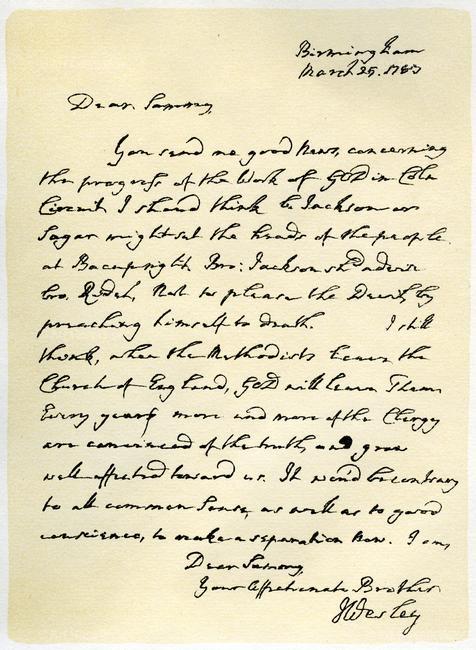 Birmingham
March 25. 1787
Dear Sammy,
You send me good news, concerning
the progress of the Work of GOD in Coln
Circuit. I should think Br Jackson or
Sagar might set the heads of the people
at Bacup right. Bro: Jackson shd advise
bro. Riddel, Not to please the Devil, by
preaching himself to death. I still
think, when the Methodists leave the
Church of England, GOD will leave Them.
Every year more and more of the Clergy
are convinced of the truth, and grow
well-affected toward us. It woud be contrary
to all common Sense, as well as to good
conscience, to make a separation now. I am,
Dear Sammy,
Your Affectionate Brother
JWesley